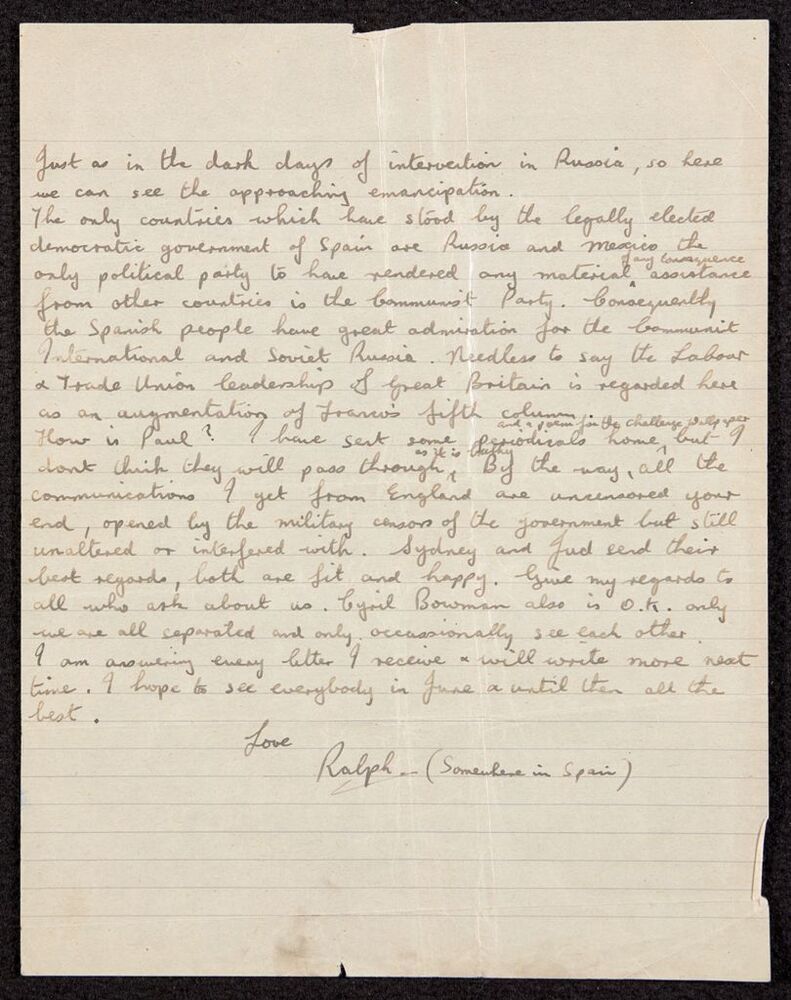 Just as in the dark days of intervention in Russia, so here
we can see the approaching emancipation.
The only countries which have stood by the legally elected
democratic government of Spain are Russia and Mexico, the
of any consequence
only political party to have rendered any material ^ assistance
from other countries is the Communist Party. Consequently
the Spanish people have great admiration for the Communist
International and Soviet Russia. Needless to say the Labour
& Trade Union leadership of Great Britain is regarded here
as an augmentation of Franco's fifth column.
and a poem for the challenge wallpaper
How is Paul? I have sent some periodicals home, ^ but I
as it is bulky
dont think they will pass through, ^ By the way, all the
communications I get from England are uncensored your
end, opened by the military censors of the government but still
unaltered or interfered with. Sydney and Jud send their
best regards, both are fit and happy. Give my regards to
all who ask about us. Cyril Bowman also is O.K. only
we are all separated and only occassionally see each other.
I am answering every letter I receive & will write more next
time. I hope to see everybody in June & until then all the
best.
Love
Ralph - (Somewhere in Spain)